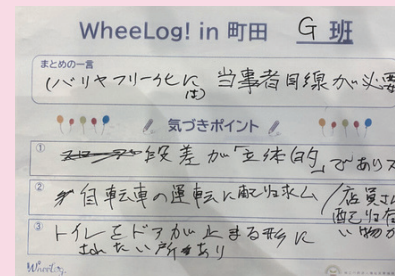 WheeLog! in 町田 G 班
まとめの一言
(バリヤフリー化に(は) 当事者目線が必要
気づきポイント
① 段差が「立体的」であり
② 自転車の運転に配り求ム /店員さ
配り
い物が
③ トイレをドアが止まる形に
されたい所あり
WheeLog